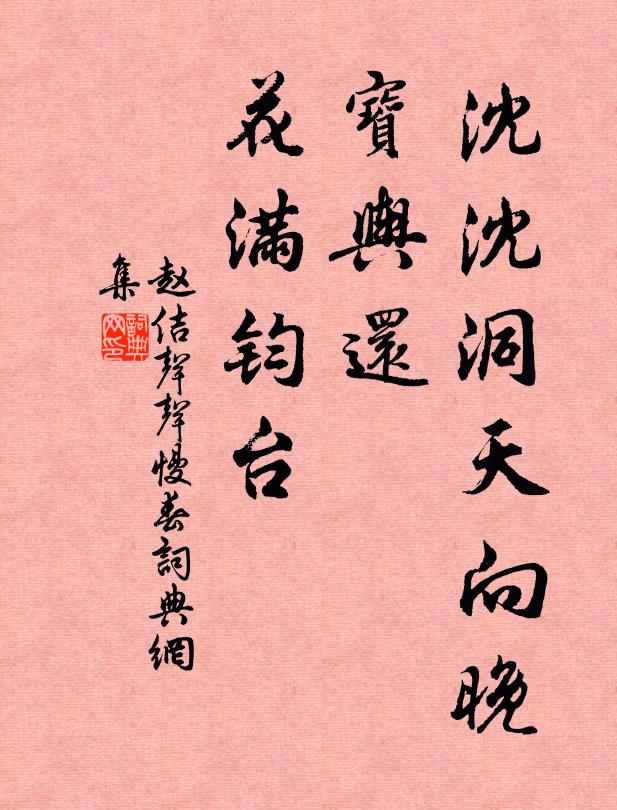 沈沈洞天向晚
寶輿還
花滿鈞台
赵佶聲聲慢春詞典網
集
詞典
网印